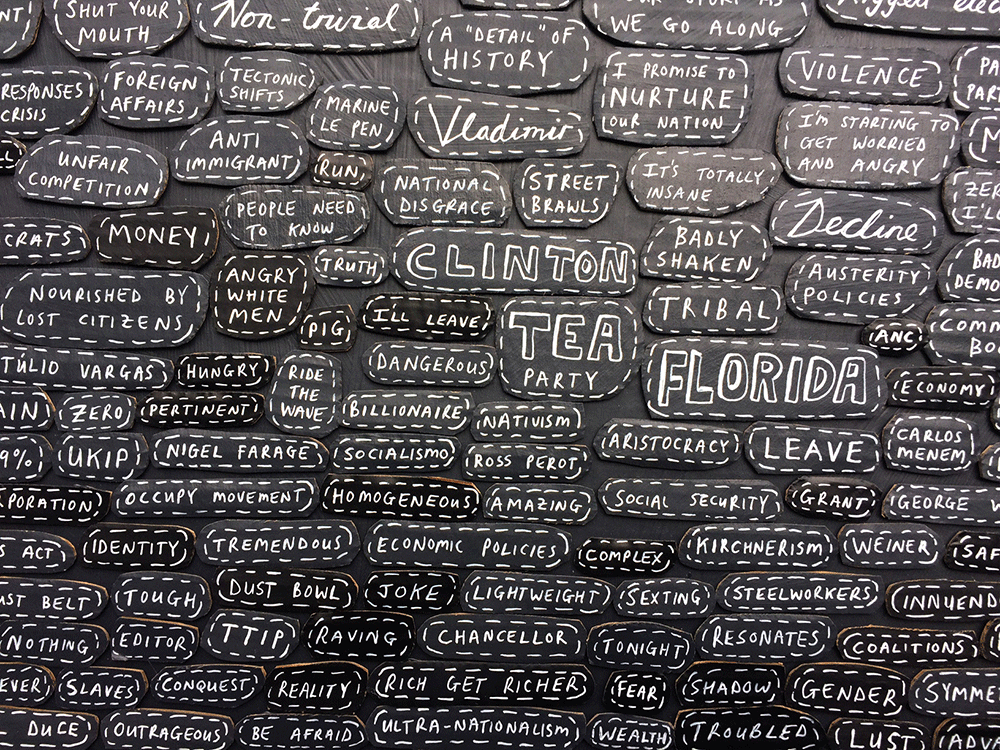 SHUT YOUR
MOUTH
Non-trivial
A "DETAIL" OF
HISTORY
WE GO ALONG
RESPONSES
CRISIS
FOREIGN
AFFAIRS
TECTONIC
SHIFTS
MARINE
LE PEN
Vladimir
I PROMISE TO
NURTURE
OUR NATION
VIOLENCE
I'M STARTING TO
GET WORRIED
AND ANGRY
UNFAIR
COMPETITION
ANTI
IMMIGRANT
RUN
NATIONAL
DISGRACE
STREET
BRAWLS
IT'S TOTALLY
INSANE
CRATS
MONEY
PEOPLE NEED
TO KNOW
TRUTH
CLINTON
BADLY
SHAKEN
Decline
NOURISHED BY
LOST CITIZENS
ANGRY
WHITE
MEN
PIG
I'LL LEAVE
TEA
PARTY
TRIBAL
AUSTERITY
POLICIES
ANC
TÚLIO VARGAS
HUNGRY
RIDE
THE
WAVE
DANGEROUS
FLORIDA
ECONOMY
AIN
ZERO
PERTINENT
BILLIONAIRE
NATIVISM
ARISTOCRACY
LEAVE
CARLOS
MENEM
9%
UKIP
NIGEL FARAGE
SOCIALISMO
ROSS PEROT
RPORATION
OCCUPY MOVEMENT
HOMOGENEOUS
AMAZING
SOCIAL SECURITY
GRANT
GEORGE W
S ACT
IDENTITY
TREMENDOUS
ECONOMIC POLICIES
COMPLEX
KIRCHNERISM
WEINER
SAF
UST BELT
TOUGH
DUST BOWL
JOKE
LIGHTWEIGHT
SEXTING
STEELWORKERS
INNUEND
NOTHING
EDITOR
TTIP
RAVING
CHANCELLOR
TONIGHT
RESONATES
COALITIONS
EVER
SLAVES
CONQUEST
REALITY
RICH GET RICHER
FEAR
SHADOW
GENDER
SYMME
DUCE
OUTRAGEOUS
BE AFRAID
ULTRA-NATIONALISM
WEALTH
TROUBLED
LUST
ADV